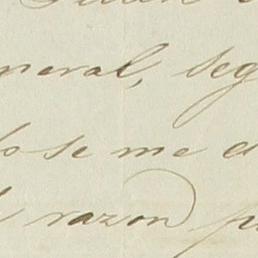 neral, seg
lo se me d
razon p